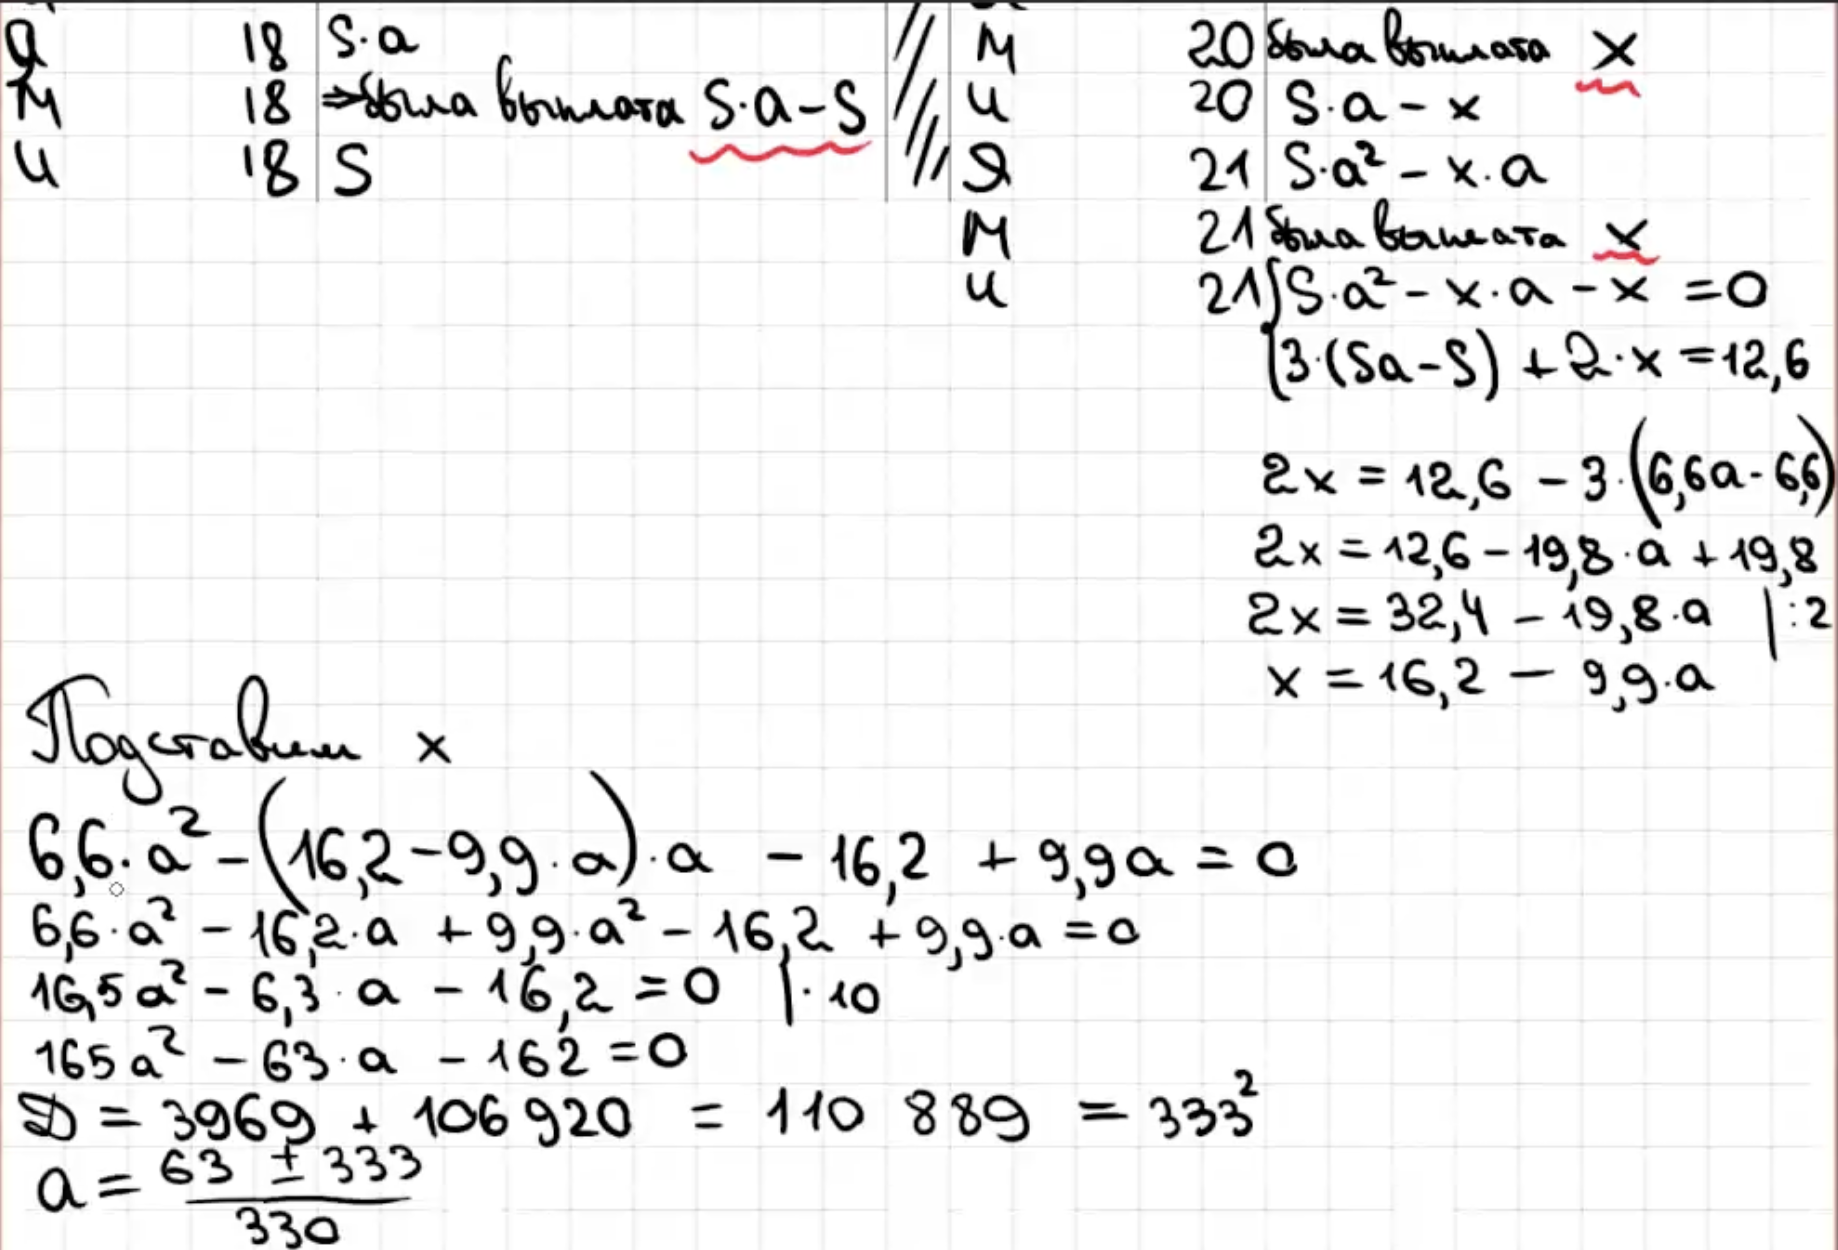 Я 18 S·a
М 18 ⇒ была выплата S·a-S
И 18 S
М 20 была выплата x
И 20 S·a - x
Я 21 S·a² - x·a
М 21 была выплата x
И 21 S·a² - x·a - x = 0
3·(Sa-S) + 2·x = 12,6
2x = 12,6 - 3·(6,6a - 6,6)
2x = 12,6 - 19,8·a + 19,8
2x = 32,4 - 19,8·a |:2
x = 16,2 - 9,9·a
Подставим x
6,6·a² - (16,2 - 9,9·a)·a - 16,2 + 9,9a = 0
6,6·a² - 16,2·a + 9,9·a² - 16,2 + 9,9·a = 0
16,5a² - 6,3·a - 16,2 = 0 |·10
165a² - 63·a - 162 = 0
D = 3969 + 106920 = 110 889 = 333²
a = 63 ± 333
330